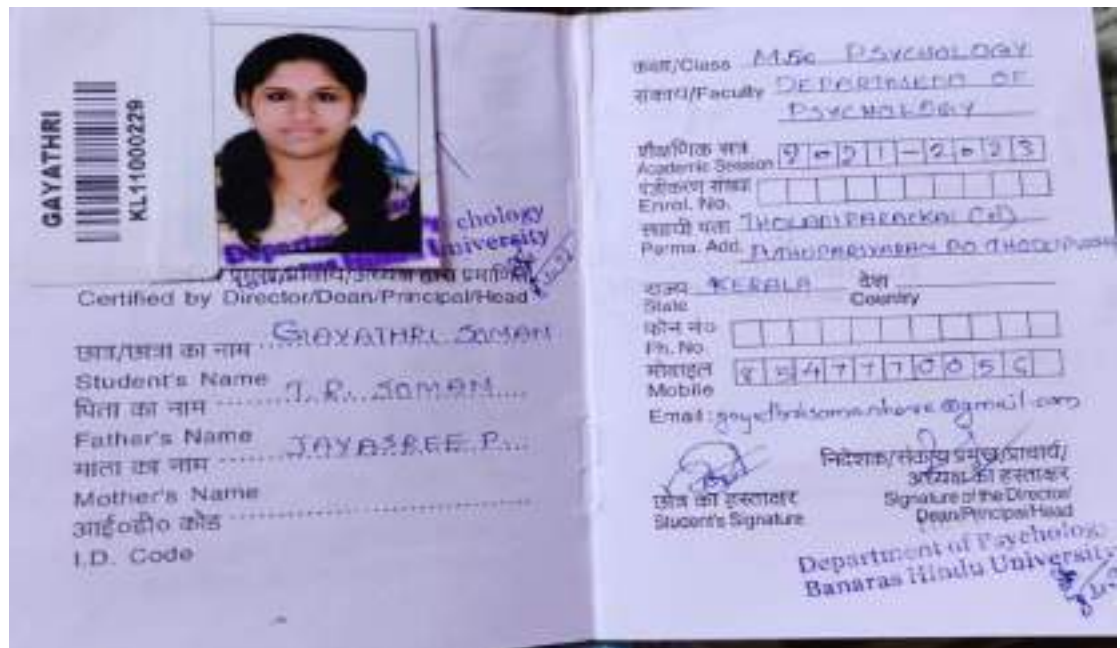 GAYATHRI
KL11000229
chology
University
Certified by Director/Dean/Principal/Head
छात्र/छात्रा का नाम GAYATHRI SOMAN
Student's Name
पिता का नाम T. R. SOMAN
Father's Name
माता का नाम JAYASREE P.
Mother's Name
आई०डी० कोड
I.D. Code
कक्षा/Class M.Sc PSYCHOLOGY
संकाय/Faculty DEPARTMENT OF
PSYCHOLOGY
शैक्षणिक सत्र
Academic Session 2021-2023
पंजीकरण संख्या
Enrol. No.
स्थायी पता
Perma. Add.
राज्य KERALA देश
State Country
फोन नं०
Ph. No.
मोबाइल
Mobile
Email: @gmail.com
निदेशक/संकाय प्रमुख/प्राचार्य/
अध्यक्ष का हस्ताक्षर
छात्र का हस्ताक्षर Signature of the Director/
Student's Signature Dean/Principal/Head
Department of Psychology
Banaras Hindu University